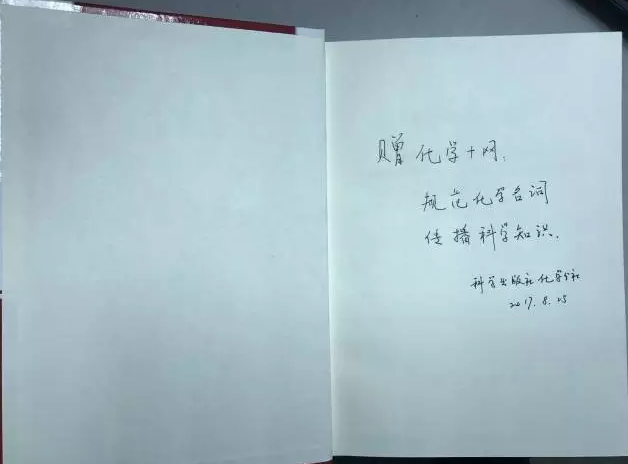 赠化学+网：
规范化学名词
传播科学知识.
科学出版社化学分社
2017.8.25